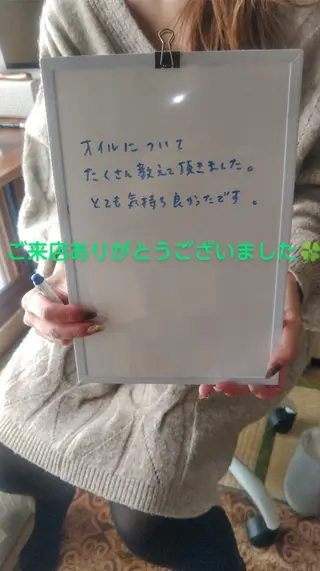 オイルについて
たくさん教えて頂きました。
とても気持ち良かったです。
ご来店ありがとうございました🍀